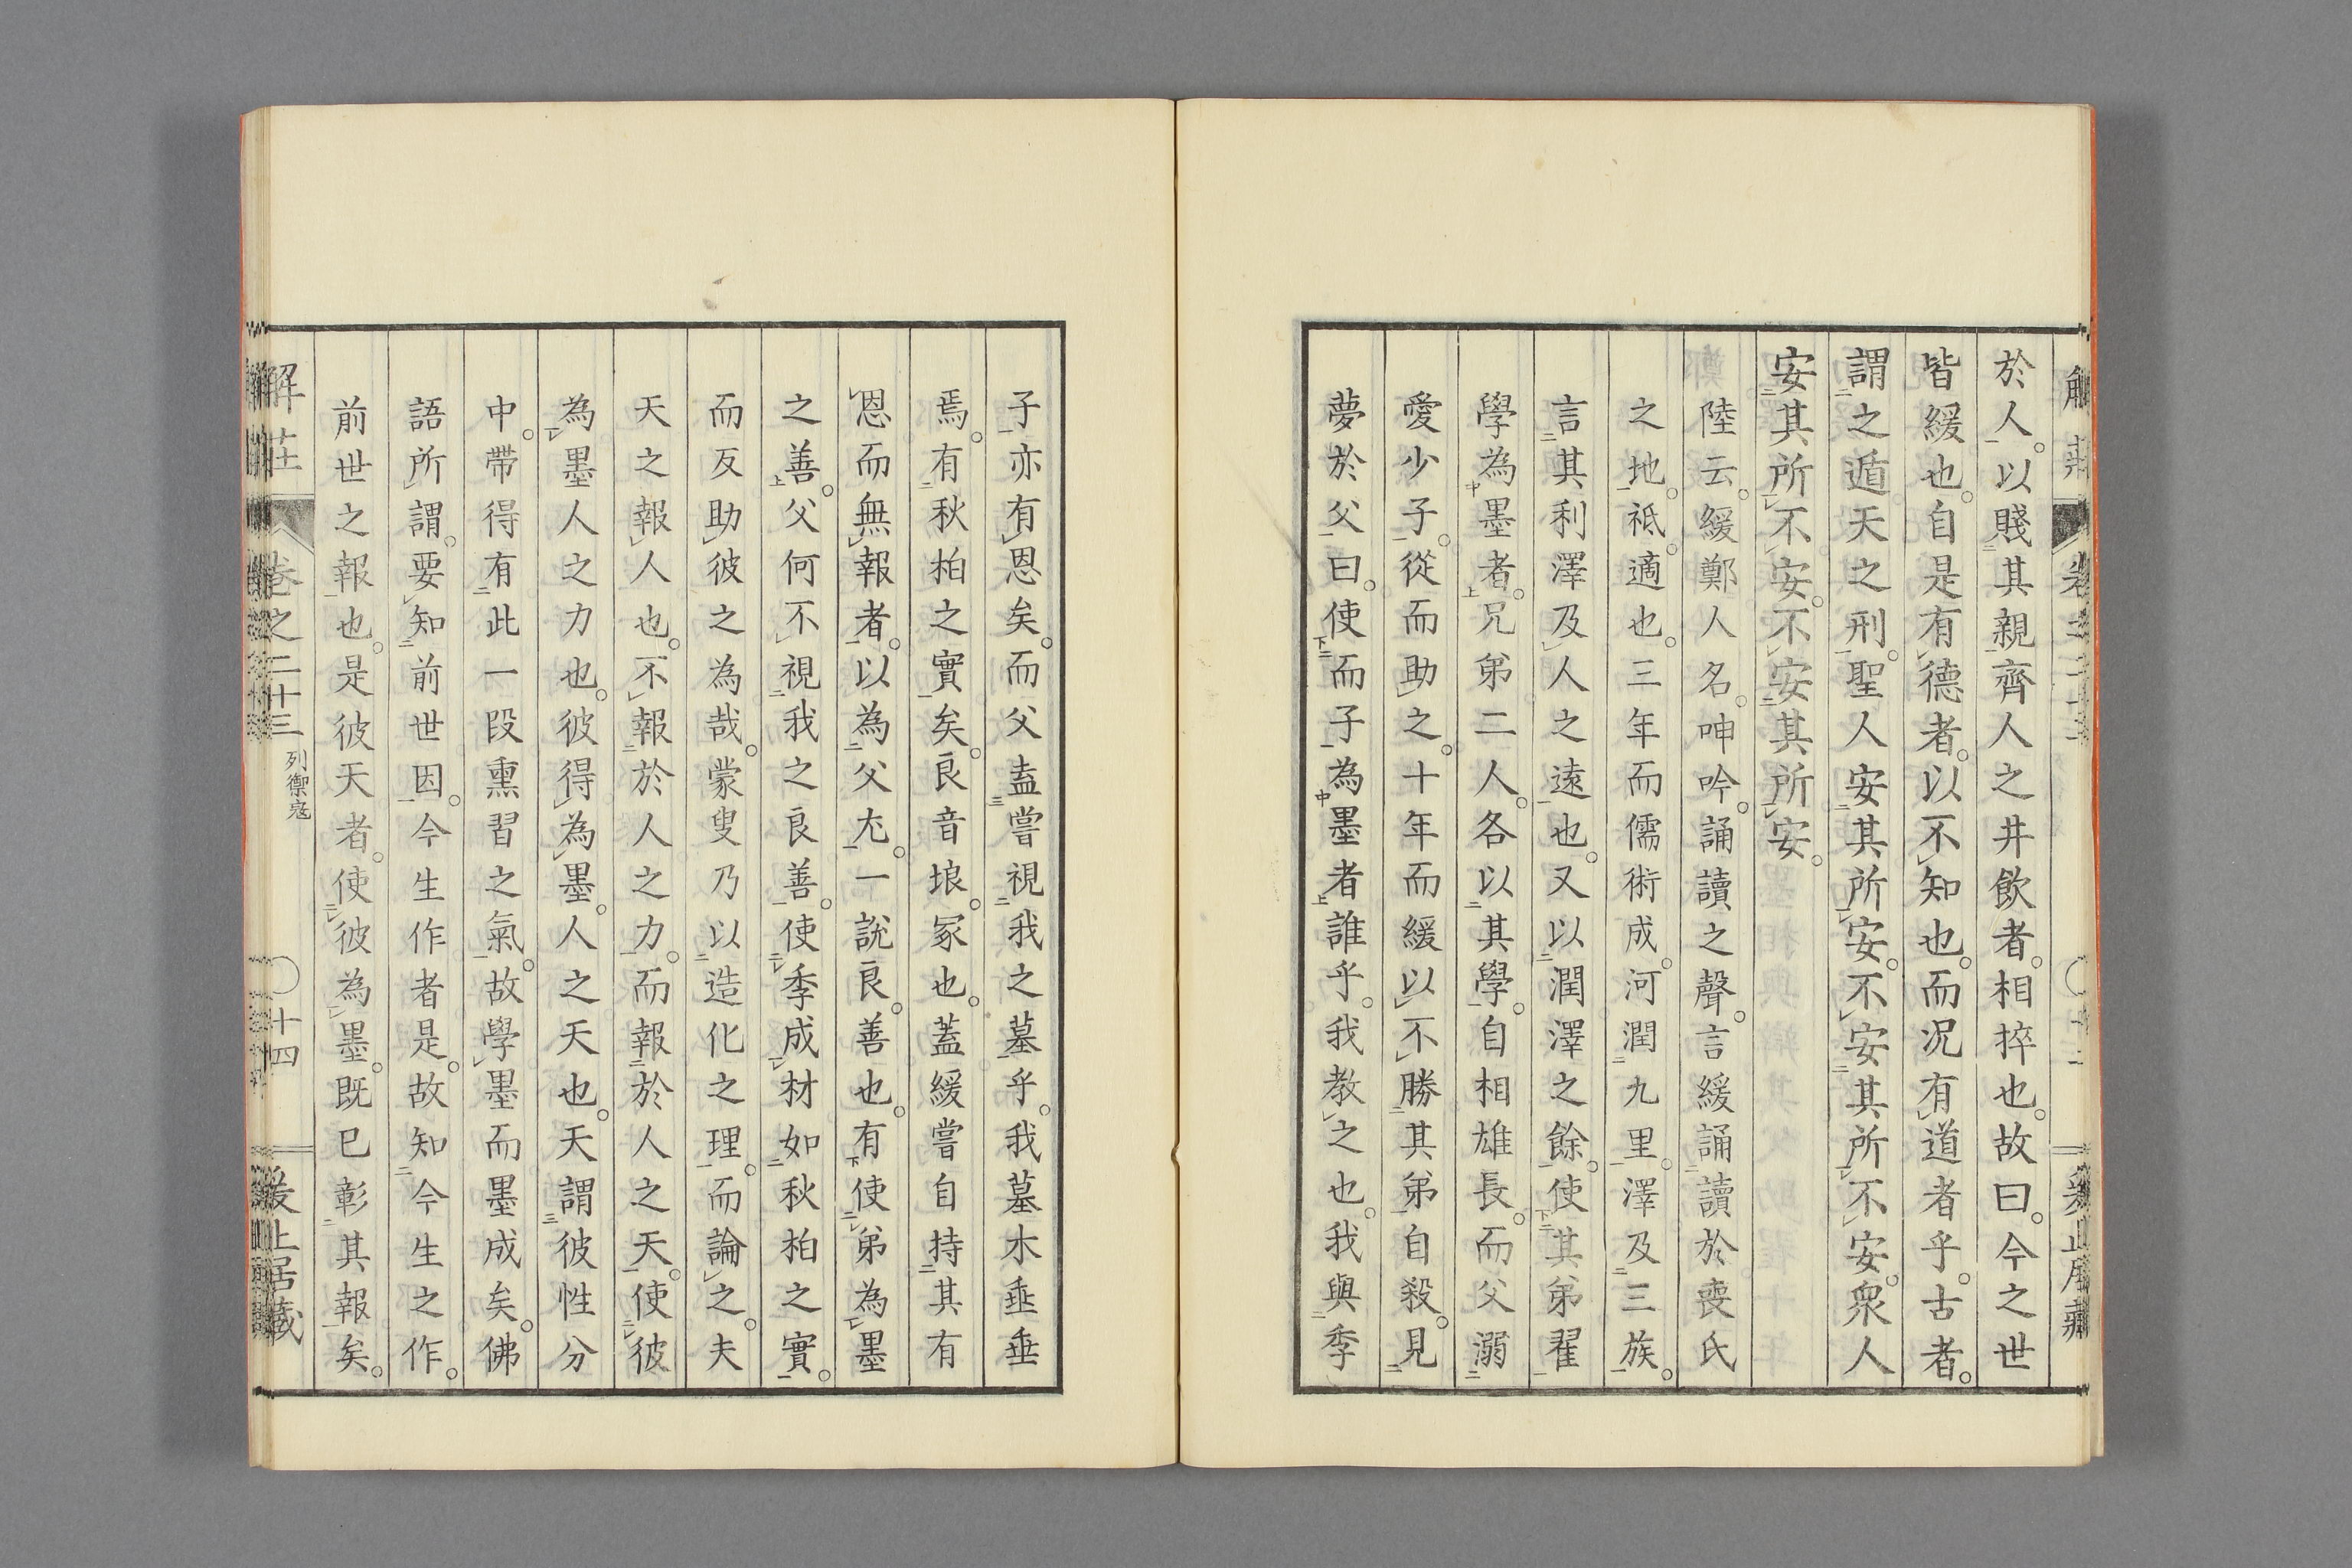 於人以賤其親齊人之井飲者相捽也故曰今之世
皆緩也自是有德者以不知也而況有道者乎古者
謂之遁天之刑聖人安其所安不安其所不安眾人
安其所不安不安其所安
陸云緩鄭人名呻吟誦讀之聲言緩誦讀於喪氏
之地祗適也三年而儒術成河潤九里澤及三族
言其利澤及人之遠也又以潤澤之餘使其弟翟
學為墨者兄弟二人各以其學自相雄長而父溺
愛少子從而助之十年而緩以不勝其弟自殺見
夢於父曰使而子為墨者誰乎我教之也我與季
子亦有恩矣而父盍嘗視我之墓乎我墓木垂垂
焉有秋柏之實矣良音埌冢也蓋緩嘗自持其有
恩而無報者以為父尤一說良善也有使弟為墨
之善父何不視我之良善使季成材如秋柏之實
而反助彼之為哉蒙叟乃以造化之理而論之夫
天之報人也不報於人之力而報於人之天使彼
為墨人之力也彼得為墨人之天也天謂彼性分
中帶得有此一段熏習之氣故學墨而墨成矣佛
語所謂要知前世因今生作者是故知今生之作
前世之報也是彼天者使彼為墨既已彰其報矣
解莊 卷之二十三 列禦寇 十四